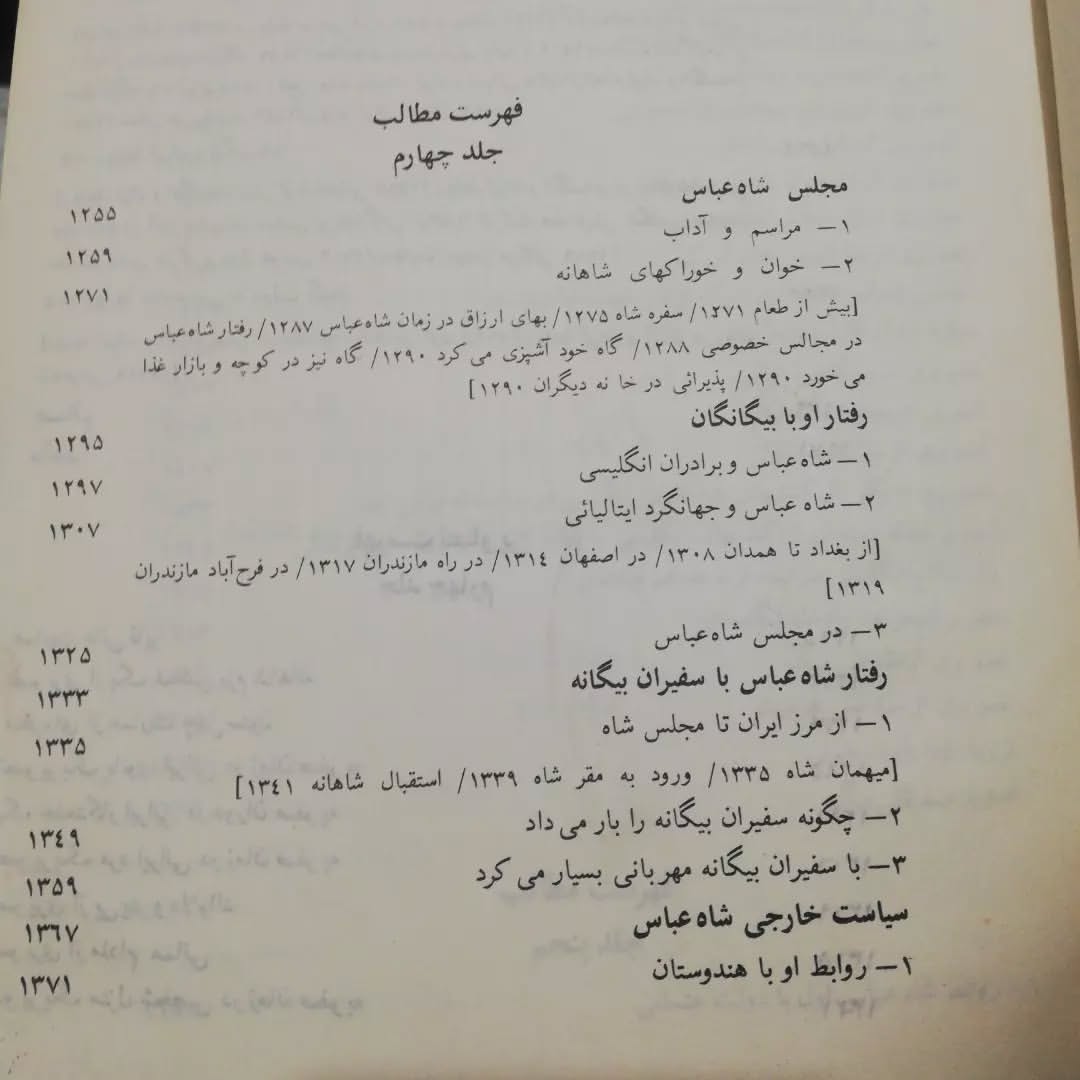 فهرست مطالب
جلد چهارم
مجلس شاه عباس ۱۲۵۵
۱- مراسم و آداب ۱۲۵۹
۲- خوان و خوراکهای شاهانه ۱۲۷۱
[پیش از طعام ۱۲۷۱/ سفره شاه ۱۲۷۵/ بهای ارزاق در زمان شاه عباس ۱۲۸۷/ رفتار شاه عباس
در مجالس خصوصی ۱۲۸۸/ گاه خود آشپزی می کرد ۱۲۹۰/ گاه نیز در کوچه و بازار غذا
می خورد ۱۲۹۰/ پذیرائی در خا نه دیگران ۱۲۹۰]
رفتار او با بیگانگان ۱۲۹۵
۱- شاه عباس و برادران انگلیسی ۱۲۹۷
۲- شاه عباس و جهانگرد ایتالیائی ۱۳۰۷
[از بغداد تا همدان ۱۳۰۸/ در اصفهان ۱۳۱۴/ در راه مازندران ۱۳۱۷/ در فرح آباد مازندران
۱۳۱۹]
۳- در مجلس شاه عباس ۱۳۲۵
رفتار شاه عباس با سفیران بیگانه ۱۳۳۳
۱- از مرز ایران تا مجلس شاه ۱۳۳۵
[میهمان شاه ۱۳۳۵/ ورود به مقر شاه ۱۳۳۹/ استقبال شاهانه ۱۳۴۱]
۲- چگونه سفیران بیگانه را بار می داد ۱۳۴۹
۳- با سفیران بیگانه مهربانی بسیار می کرد ۱۳۵۹
سیاست خارجی شاه عباس ۱۳۶۷
۱- روابط او با هندوستان ۱۳۷۱